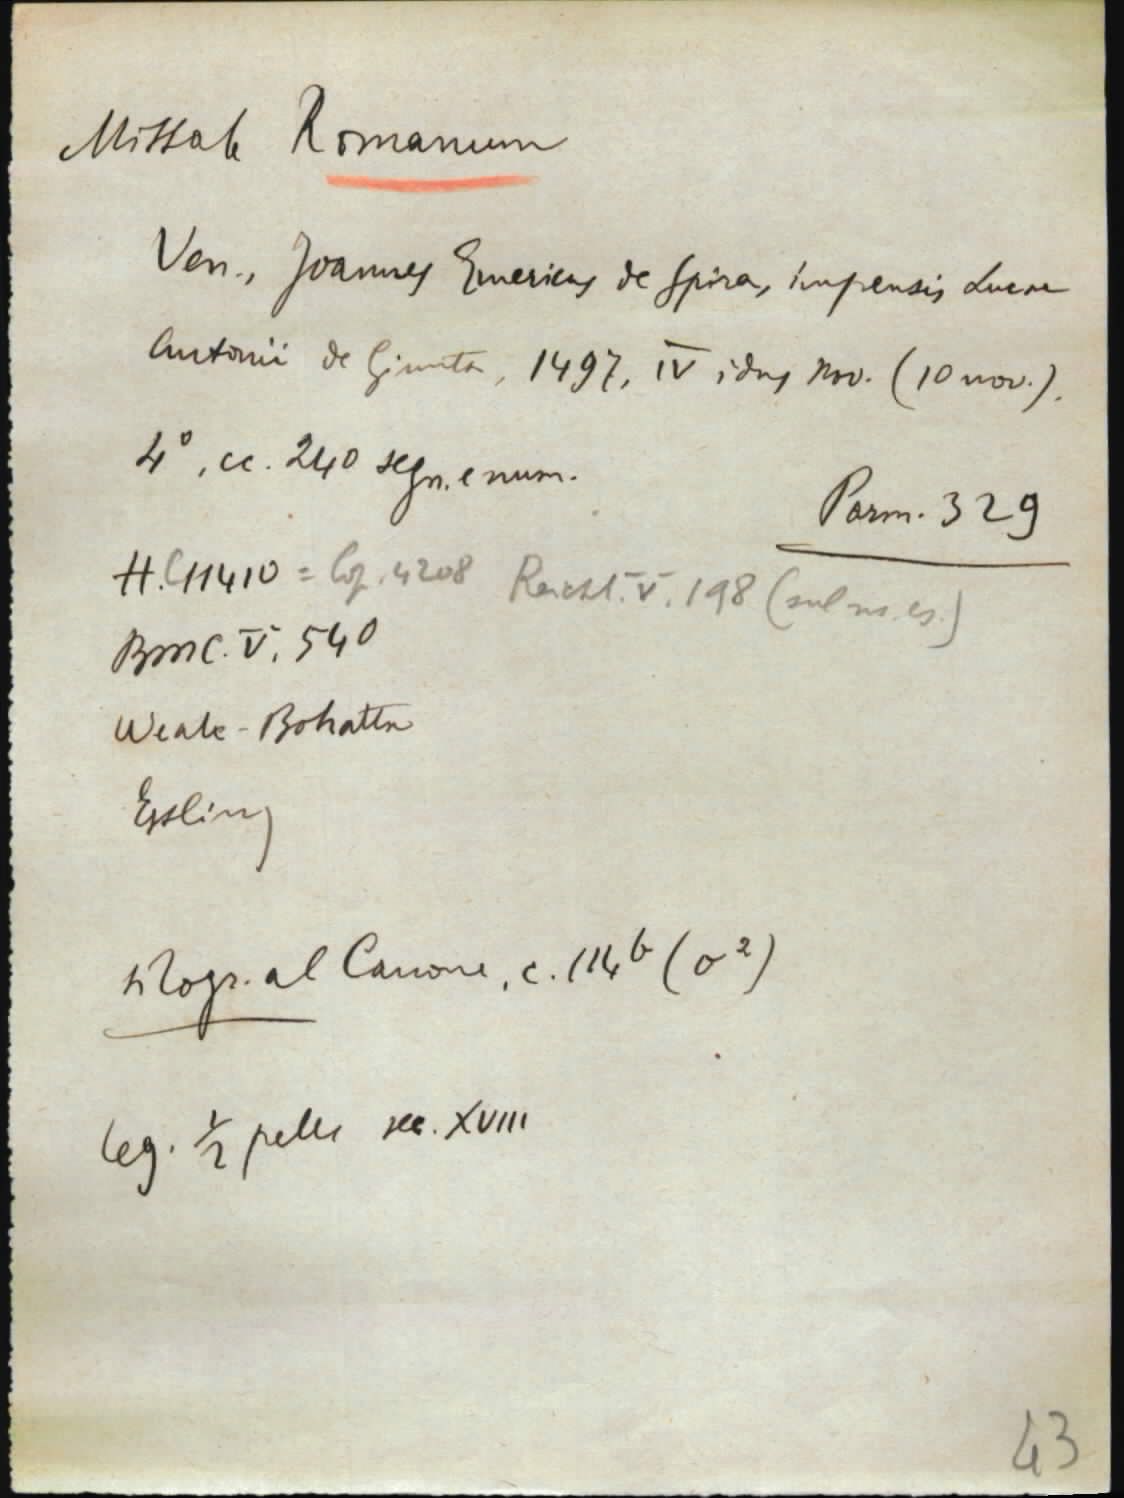 Missale Romanum
Ven., Joannes Emericus de Spira, impensis Lucae
Antonii de Giunta, 1497, IV idus Nov. (10 nov.).
4°, cc. 240 segn. e num.
Parm. 329
H.C 11410 = Cop. 4208 Reichl. V. 198 (sul ns. es.)
BMC. V, 540
Weale-Bohatta
Essling
silogr. al Canone, c. 114b (o2)
leg. 1/2 pelle sec. XVIII
43